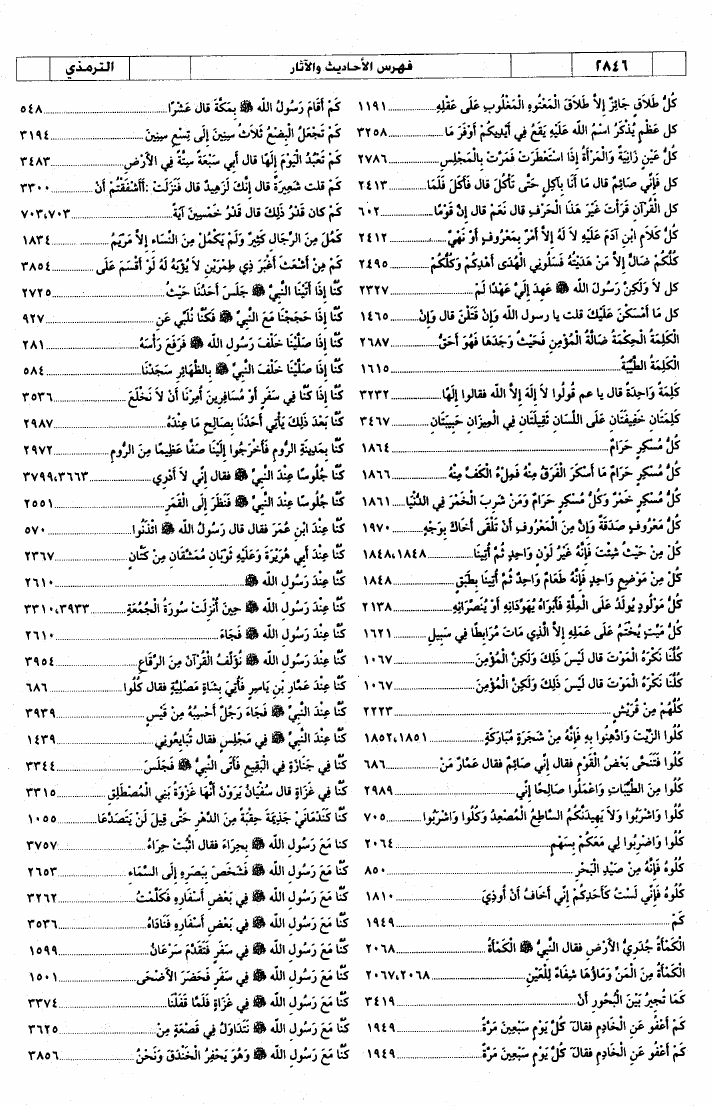 ٢٨٤٦ فهرس الأحاديث والآثار الترمذي
كُلُّ طَلَاقٍ جَائِزٌ إِلاَّ طَلَاقَ الْمَعْتُوهِ الْمَغْلُوبِ عَلَى عَقْلِهِ ١١٩١
كل عَظْمٍ يُذْكَرُ اسْمُ الله عَلَيْهِ يَقَعُ فِي أَيْدِيكُمْ أَوْفَرَ مَا ٣٢٥٨
كُلُّ عَيْنٍ زَانِيَةٌ وَالْمَرْأَةُ إِذَا اسْتَعْطَرَتْ فَمَرَّتْ بِالْمَجْلِسِ ٢٧٨٦
كل فَإِنِّي صَائِمٌ قال مَا أَنَا بِآكِلٍ حَتَّى تَأْكُلَ قال فَأَكَلَ فَلَمَّا ٢٤١٣
كل الْقُرْآنِ قَرَأْتَ غَيْرَ هَذَا الْحَرْفِ قال نَعَمْ قال إِنَّ قَوْمًا ٦٠٢
كُلُّ كَلَامِ ابْنِ آدَمَ عَلَيْهِ لَا لَهُ إِلاَّ أَمْرٌ بِمَعْرُوفٍ أَوْ نَهْيٌ ٢٤١٢
كُلُّكُمْ ضَالٌّ إِلاَّ مَنْ هَدَيْتُهُ فَسَلُونِي الْهُدَى أَهْدِكُمْ وَكُلُّكُمْ ٢٤٩٥
كل لَا وَلَكِنْ رَسُولُ الله ﷺ عَهِدَ إِلَيَّ عَهْدًا لَمْ ٢٣٢٧
كل مَا أَمْسَكْنَ عَلَيْكَ قلت يا رسول الله وَإِنْ قَتَلْنَ قال وَإِنْ ١٤٦٥
الْكَلِمَةُ الْحِكْمَةُ ضَالَّةُ الْمُؤْمِنِ فَحَيْثُ وَجَدَهَا فَهُوَ أَحَقُّ ٢٦٨٧
الْكَلِمَةُ الطَّيِّبَةُ ١٦١٥
كَلِمَةً وَاحِدَةً قال يا عم قُولُوا لَا إِلَهَ إِلاَّ الله فقالوا إِلَهًا ٣٢٣٢
كَلِمَتَانِ خَفِيفَتَانِ عَلَى اللِّسَانِ ثَقِيلَتَانِ فِي الْمِيزَانِ حَبِيبَتَانِ ٣٤٦٧
كُلُّ مُسْكِرٍ حَرَامٌ ١٨٦٤
كُلُّ مُسْكِرٍ حَرَامٌ مَا أَسْكَرَ الْفَرَقُ مِنْهُ فَمِلْءُ الْكَفِّ مِنْهُ ١٨٦٦
كُلُّ مُسْكِرٍ خَمْرٌ وَكُلُّ مُسْكِرٍ حَرَامٌ وَمَنْ شَرِبَ الْخَمْرَ فِي الدُّنْيَا ١٨٦١
كُلُّ مَعْرُوفٍ صَدَقَةٌ وَإِنَّ مِنَ الْمَعْرُوفِ أَنْ تَلْقَى أَخَاكَ بِوَجْهٍ ١٩٧٠
كُلْ مِنْ حَيْثُ شِئْتَ فَإِنَّهُ غَيْرُ لَوْنٍ وَاحِدٍ ثُمَّ أُتِينَا ١٨٤٨،١٨٤٨
كُلْ مِنْ مَوْضِعٍ وَاحِدٍ فَإِنَّهُ طَعَامٌ وَاحِدٌ ثُمَّ أُتِينَا بِطَبَقٍ ١٨٤٨
كُلُّ مَوْلُودٍ يُولَدُ عَلَى الْمِلَّةِ فَأَبَوَاهُ يُهَوِّدَانِهِ أَوْ يُنَصِّرَانِهِ ٢١٣٨
كُلُّ مَيِّتٍ يُخْتَمُ عَلَى عَمَلِهِ إِلاَّ الَّذِي مَاتَ مُرَابِطًا فِي سَبِيلِ ١٦٢١
كُلُّنَا نَكْرَهُ الْمَوْتَ قال لَيْسَ ذَلِكَ وَلَكِنَّ الْمُؤْمِنَ ١٠٦٧
كُلُّنَا نَكْرَهُ الْمَوْتَ قال لَيْسَ ذَلِكَ وَلَكِنَّ الْمُؤْمِنَ ١٠٦٧
كُلُّهُمْ مِنْ قُرَيْشٍ ٢٢٢٣
كُلُوا الزَّيْتَ وَادَّهِنُوا بِهِ فَإِنَّهُ مِنْ شَجَرَةٍ مُبَارَكَةٍ ١٨٥٢،١٨٥١
كُلُوا فَتَنَحَّى بَعْضُ الْقَوْمِ فقال إِنِّي صَائِمٌ فقال عَمَّارٌ مَنْ ٦٨٦
كُلُوا مِنَ الطَّيِّبَاتِ وَاعْمَلُوا صَالِحًا إِنِّي ٢٩٨٩
كُلُوا وَاشْرَبُوا وَلَا يَهِيدَنَّكُمُ السَّاطِعُ الْمُصْعِدُ وَكُلُوا وَاشْرَبُوا ٧٠٥
كُلُوا وَاضْرِبُوا لِي مَعَكُمْ بِسَهْمٍ ٢٠٦٤
كُلُوهُ فَإِنَّهُ مِنْ صَيْدِ الْبَحْرِ ٨٥٠
كُلُوهُ فَإِنِّي لَسْتُ كَأَحَدِكُمْ إِنِّي أَخَافُ أَنْ أُوذِيَ ١٨١٠
كَمْ ١٩٤٩
الْكَمْأَةُ جُدَرِيُّ الْأَرْضِ فقال النَّبِيُّ ﷺ الْكَمْأَةُ ٢٠٦٨
الْكَمْأَةُ مِنَ الْمَنِّ وَمَاؤُهَا شِفَاءٌ لِلْعَيْنِ ٢٠٦٧،٢٠٦٨
كَمَا تُجِيرُ بَيْنَ الْبُحُورِ أَنْ ٣٤١٩
كَمْ أَعْفُو عَنِ الْخَادِمِ فقال كُلَّ يَوْمٍ سَبْعِينَ مَرَّةً ١٩٤٩
كَمْ أَعْفُو عَنِ الْخَادِمِ فقال كُلَّ يَوْمٍ سَبْعِينَ مَرَّةً ١٩٤٩
كَمْ أَقَامَ رَسُولُ الله ﷺ بِمَكَّةَ قال عَشْرًا ٥٤٨
كَمْ تَجْعَلُ الْبِضْعَ ثَلَاثُ سِنِينَ إِلَى تِسْعِ سِنِينَ ٣١٩٤
كَمْ تَعْبُدُ الْيَوْمَ إِلَهًا قال أَبِي سَبْعَةً سِتَّةً فِي الْأَرْضِ ٣٤٨٣
كَمْ قلت شَعِيرَةٌ قال إِنَّكَ لَزَهِيدٌ قال فَنَزَلَتْ: أَأَشْفَقْتُمْ أَنْ ٣٣٠٠
كَمْ كان قَدْرُ ذَلِكَ قال قَدْرُ خَمْسِينَ آيَةً ٧٠٣،٧٠٣
كَمُلَ مِنَ الرِّجَالِ كَثِيرٌ وَلَمْ يَكْمُلْ مِنَ النِّسَاءِ إِلاَّ مَرْيَمُ ١٨٣٤
كَمْ مِنْ أَشْعَثَ أَغْبَرَ ذِي طِمْرَيْنِ لَا يُؤْبَهُ لَهُ لَوْ أَقْسَمَ عَلَى ٣٨٥٤
كُنَّا إِذَا أَتَيْنَا النَّبِيَّ ﷺ جَلَسَ أَحَدُنَا حَيْثُ ٢٧٢٥
كُنَّا إِذَا حَجَجْنَا مَعَ النَّبِيِّ ﷺ فَكُنَّا نُلَبِّي عَنِ ٩٢٧
كُنَّا إِذَا صَلَّيْنَا خَلْفَ رَسُولِ الله ﷺ فَرَفَعَ رَأْسَهُ ٢٨١
كُنَّا إِذَا صَلَّيْنَا خَلْفَ النَّبِيِّ ﷺ بِالظَّهَائِرِ سَجَدْنَا ٥٨٤
كُنَّا إِذَا كُنَّا فِي سَفَرٍ أَوْ مُسَافِرِينَ أُمِرْنَا أَنْ لَا نَخْلَعَ ٣٥٣٦
كُنَّا بَعْدَ ذَلِكَ يَأْتِي أَحَدُنَا بِصَالِحِ مَا عِنْدَهُ ٢٩٨٧
كُنَّا بِمَدِينَةِ الرُّومِ فَأَخْرَجُوا إِلَيْنَا صَفًّا عَظِيمًا مِنَ الرُّومِ ٢٩٧٢
كُنَّا جُلُوسًا عِنْدَ النَّبِيِّ ﷺ فقال إِنِّي لَا أَدْرِي ٣٧٩٩،٣٦٦٣
كُنَّا جُلُوسًا عِنْدَ النَّبِيِّ ﷺ فَنَظَرَ إِلَى الْقَمَرِ ٢٥٥١
كُنَّا عِنْدَ ابْنِ عُمَرَ فقال قال رَسُولُ الله ﷺ ائْذَنُوا ٥٧٠
كُنَّا عِنْدَ أَبِي هُرَيْرَةَ وَعَلَيْهِ ثَوْبَانِ مُمَشَّقَانِ مِنْ كَتَّانٍ ٢٣٦٧
كُنَّا عِنْدَ رَسُولِ الله ﷺ ٢٦١٠
كُنَّا عِنْدَ رَسُولِ الله ﷺ حِينَ أُنْزِلَتْ سُورَةُ الْجُمُعَةِ ٣٣١٠،٣٩٣٣
كُنَّا عِنْدَ رَسُولِ الله ﷺ فَجَاءَ ٢٦١٠
كُنَّا عِنْدَ رَسُولِ الله ﷺ نُؤَلِّفُ الْقُرْآنَ مِنَ الرِّقَاعِ ٣٩٥٤
كُنَّا عِنْدَ عَمَّارِ بْنِ يَاسِرٍ فَأُتِيَ بِشَاةٍ مَصْلِيَّةٍ فقال كُلُوا ٦٨٦
كُنَّا عِنْدَ النَّبِيِّ ﷺ فَجَاءَ رَجُلٌ أَحْسِبُهُ مِنْ قَيْسٍ ٣٩٣٩
كُنَّا عِنْدَ النَّبِيِّ ﷺ فِي مَجْلِسٍ فقال تُبَايِعُونِي ١٤٣٩
كُنَّا فِي جَنَازَةٍ فِي الْبَقِيعِ فَأَتَى النَّبِيُّ ﷺ فَجَلَسَ ٣٣٤٤
كُنَّا فِي غَزَاةٍ قال سُفْيَانُ يَرَوْنَ أَنَّهَا غَزْوَةُ بَنِي الْمُصْطَلِقِ ٣٣١٥
كُنَّا كَنَدْمَانَيْ جَذِيمَةَ حِقْبَةً مِنَ الدَّهْرِ حَتَّى قِيلَ لَنْ يَتَصَدَّعَا ١٠٥٥
كنا مَعَ رَسُولِ الله ﷺ بِحِرَاءَ فقال اثْبُتْ حِرَاءُ ٣٧٥٧
كُنَّا مَعَ رَسُولِ الله ﷺ فَشَخَصَ بِبَصَرِهِ إِلَى السَّمَاءِ ٢٦٥٣
كُنَّا مَعَ رَسُولِ الله ﷺ فِي بَعْضِ أَسْفَارِهِ فَكَلَّمْتُ ٣٢٦٢
كُنَّا مَعَ رَسُولِ الله ﷺ فِي بَعْضِ أَسْفَارِهِ فَنَادَاهُ ٣٥٣٦
كُنَّا مَعَ رَسُولِ الله ﷺ فِي سَفَرٍ فَتَقَدَّمَ سَرْعَانُ ١٥٩٩
كُنَّا مَعَ رَسُولِ الله ﷺ فِي سَفَرٍ فَحَضَرَ الْأَضْحَى ١٥٠١
كُنَّا مَعَ رَسُولِ الله ﷺ فِي غَزَاةٍ فَلَمَّا قَفَلْنَا ٣٣٧٤
كُنَّا مَعَ رَسُولِ الله ﷺ نَتَدَاوَلُ فِي قَصْعَةٍ مِنْ ٣٦٢٥
كُنَّا مَعَ رَسُولِ الله ﷺ وَهُوَ يَحْفِرُ الْخَنْدَقَ وَنَحْنُ ٣٨٥٦